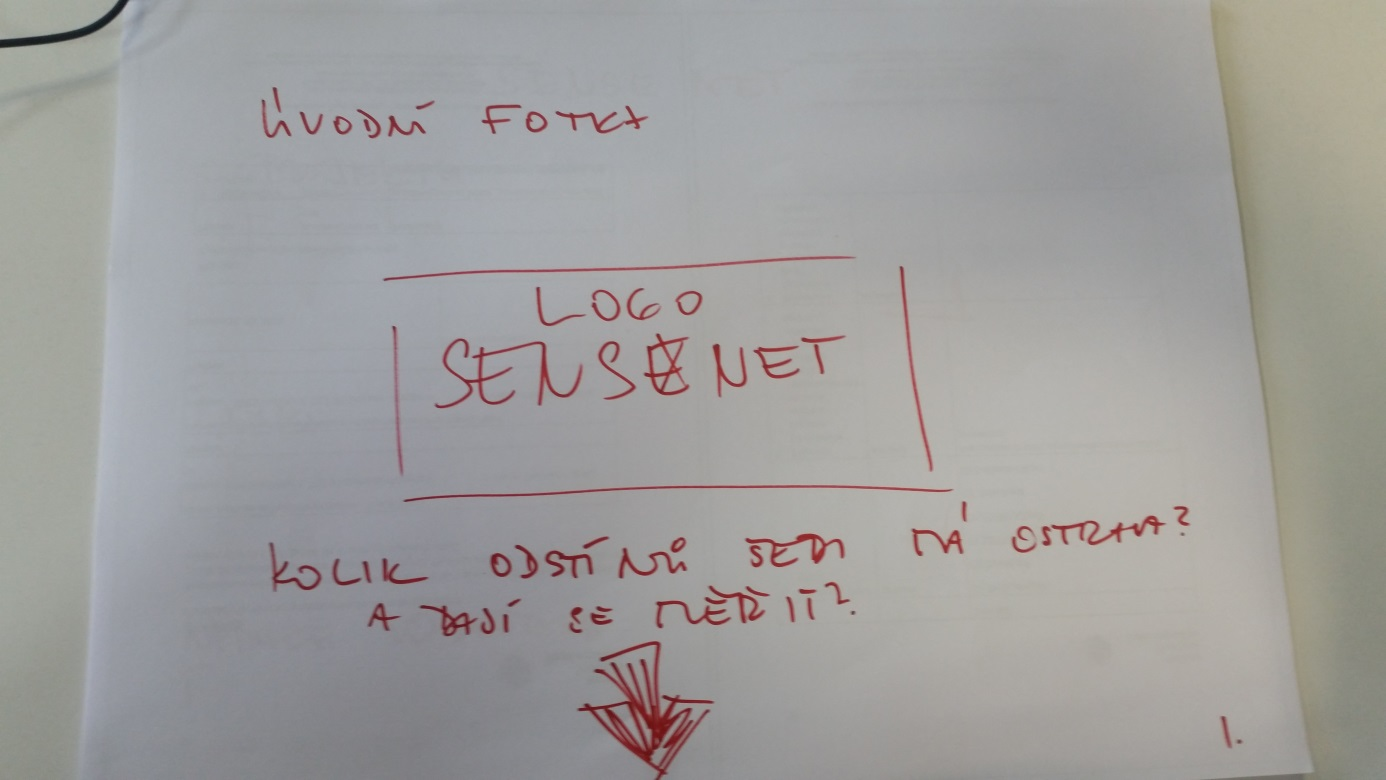 ÚVODNÍ FOTKA
LOGO
SENSENET
KOLIK ODSTÍNŮ ŠEDI MÁ OSTRAVA?
A DAJÍ SE MĚŘIT?
1.